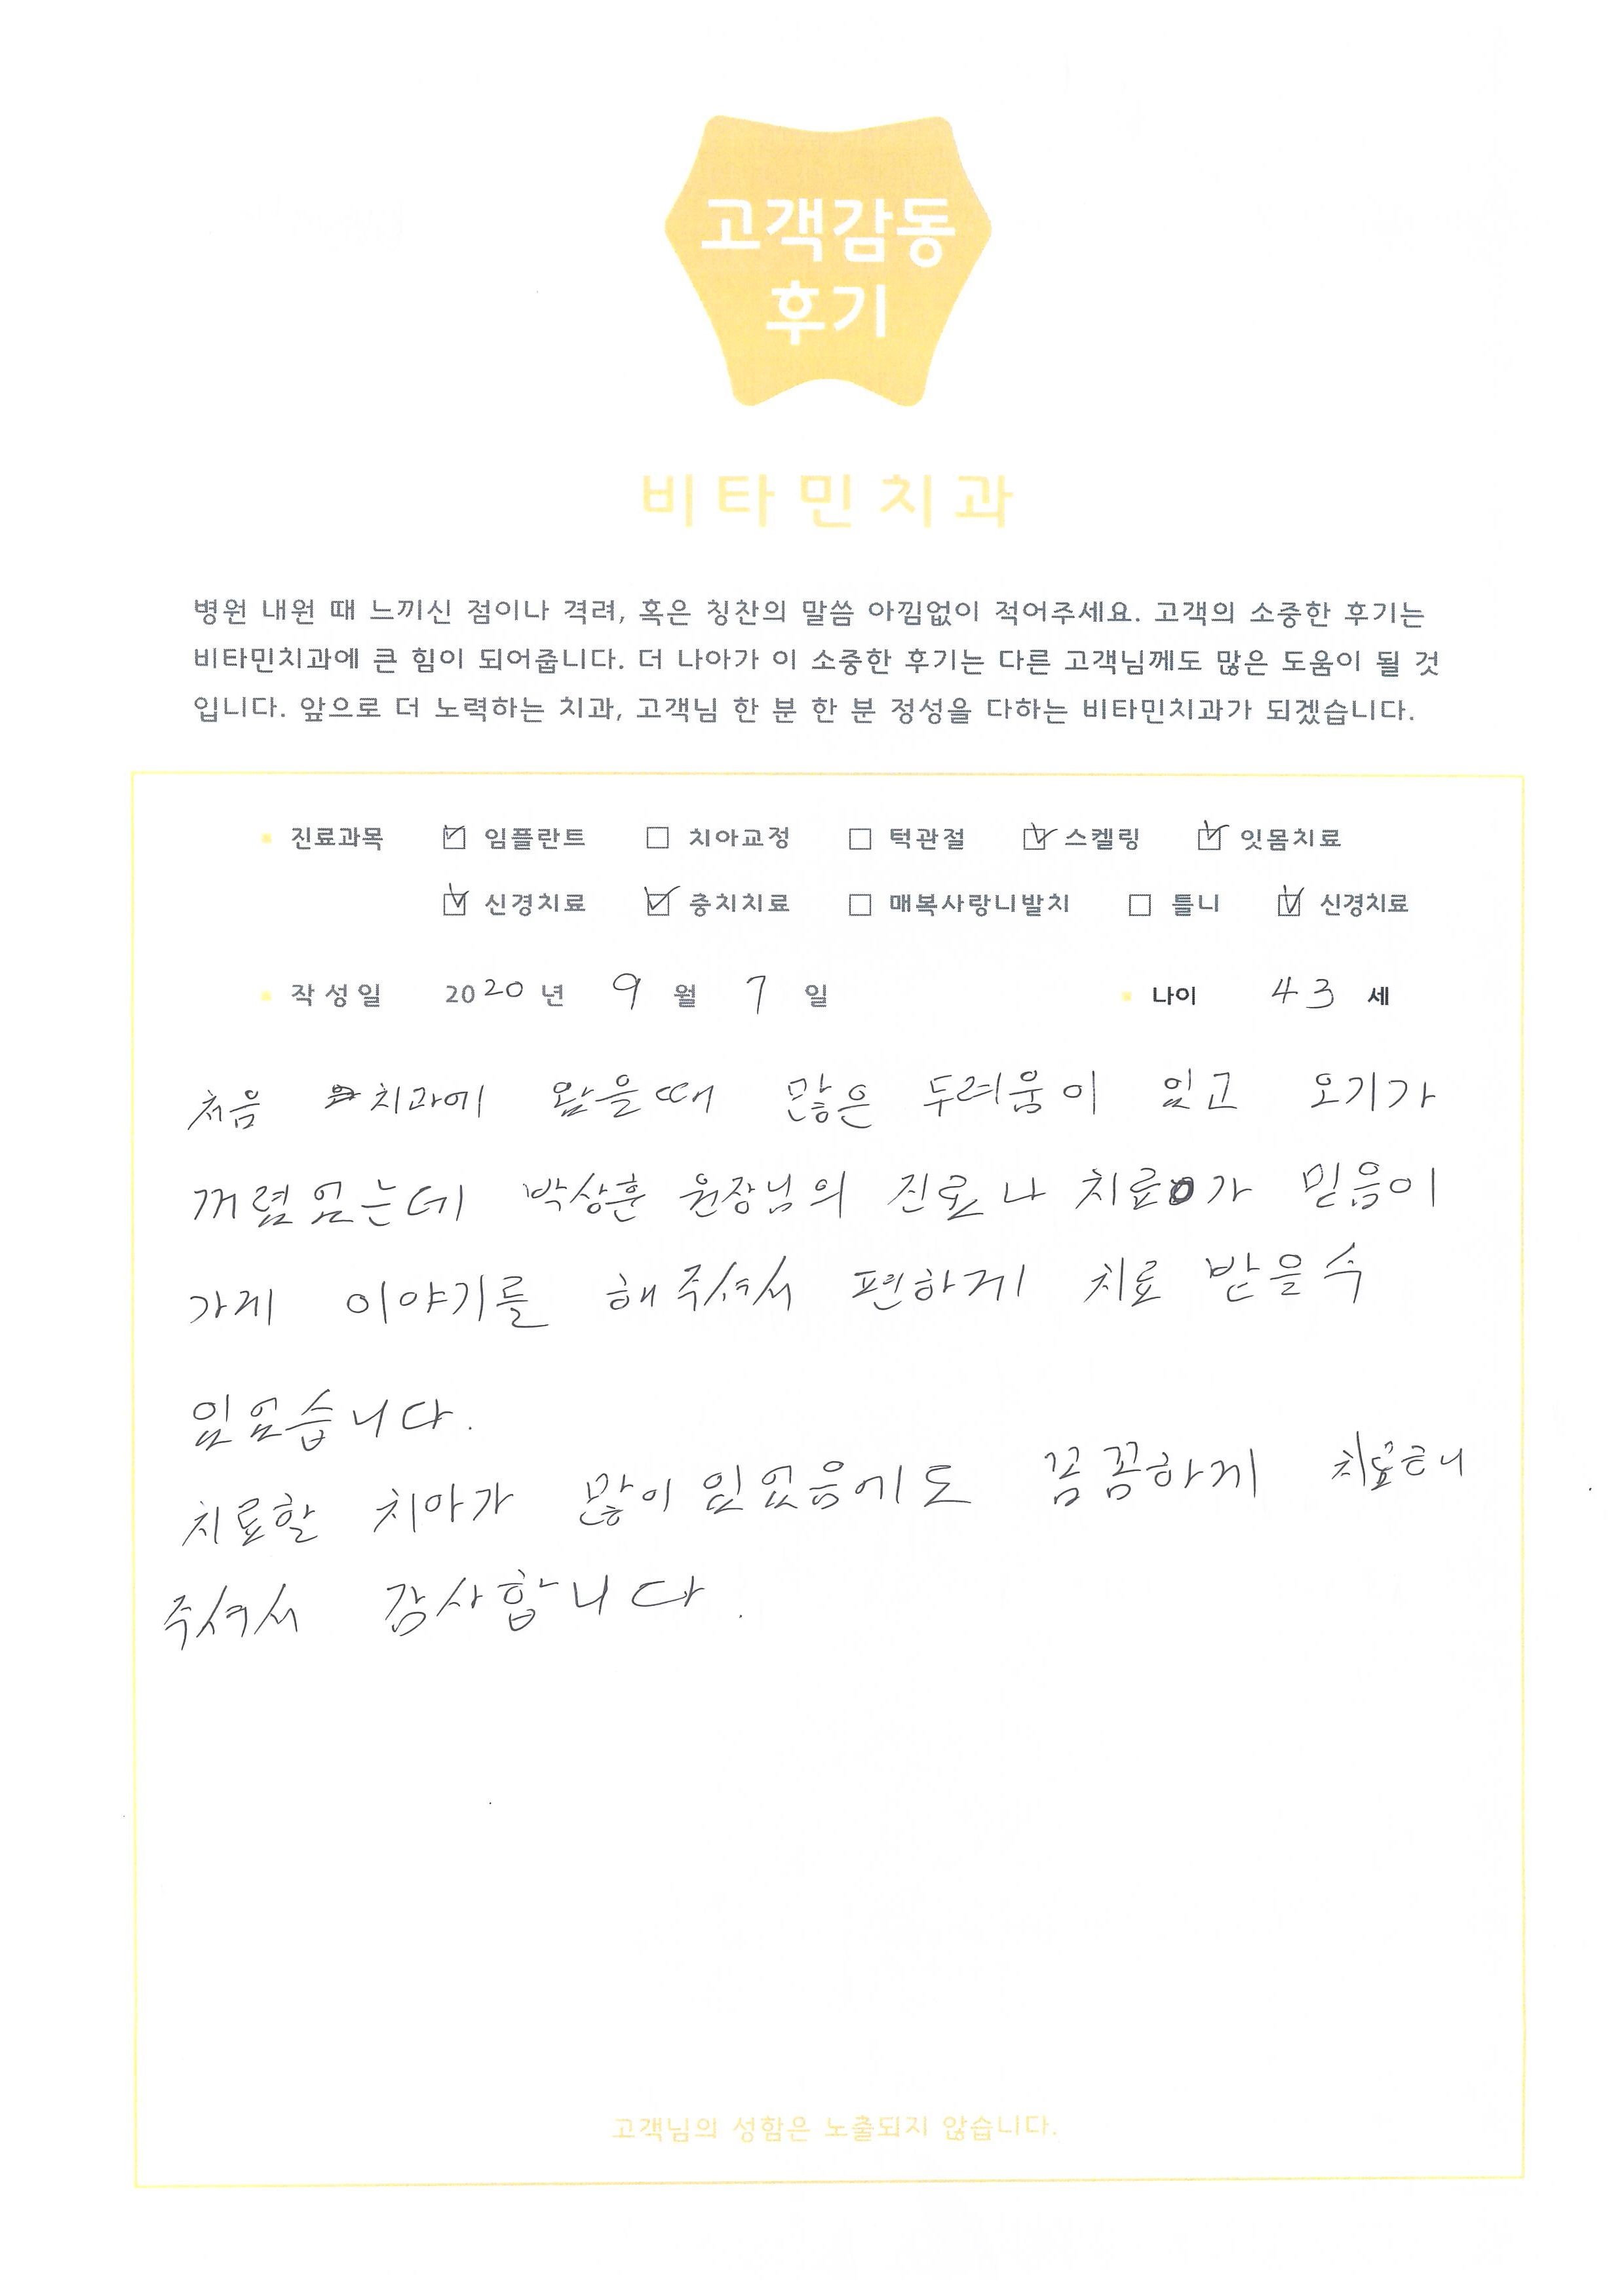 고객감동
후기
비타민치과
병원 내원 때 느끼신 점이나 격려, 혹은 칭찬의 말씀 아낌없이 적어주세요. 고객의 소중한 후기는
비타민치과에 큰 힘이 되어줍니다. 더 나아가 이 소중한 후기는 다른 고객님께도 많은 도움이 될 것
입니다. 앞으로 더 노력하는 치과, 고객님 한 분 한 분 정성을 다하는 비타민치과가 되겠습니다.
진료과목 ☑ 임플란트 ☐ 치아교정 ☐ 턱관절 ☑ 스켈링 ☑ 잇몸치료
☑ 신경치료 ☑ 충치치료 ☐ 매복사랑니발치 ☐ 틀니 ☑ 신경치료
작성일 2020년 9 월 7 일 나이 43 세
처음 치과에 왔을때 많은 두려움이 있고 오기가
꺼렸었는데 박상훈 원장님의 진료나 치료가 믿음이
가게 이야기를 해주셔서 편하게 치료 받을수
있었습니다.
치료할 치아가 많이 있었음에도 꼼꼼하게 치료해
주셔서 감사합니다.
고객님의 성함은 노출되지 않습니다.